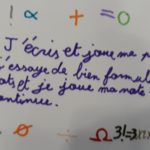 ! α + = 0
J'écris et joue me
j'essaye de bien formul
mots et je joue ma note
continue.
Ø ÷ Ω 3!=3